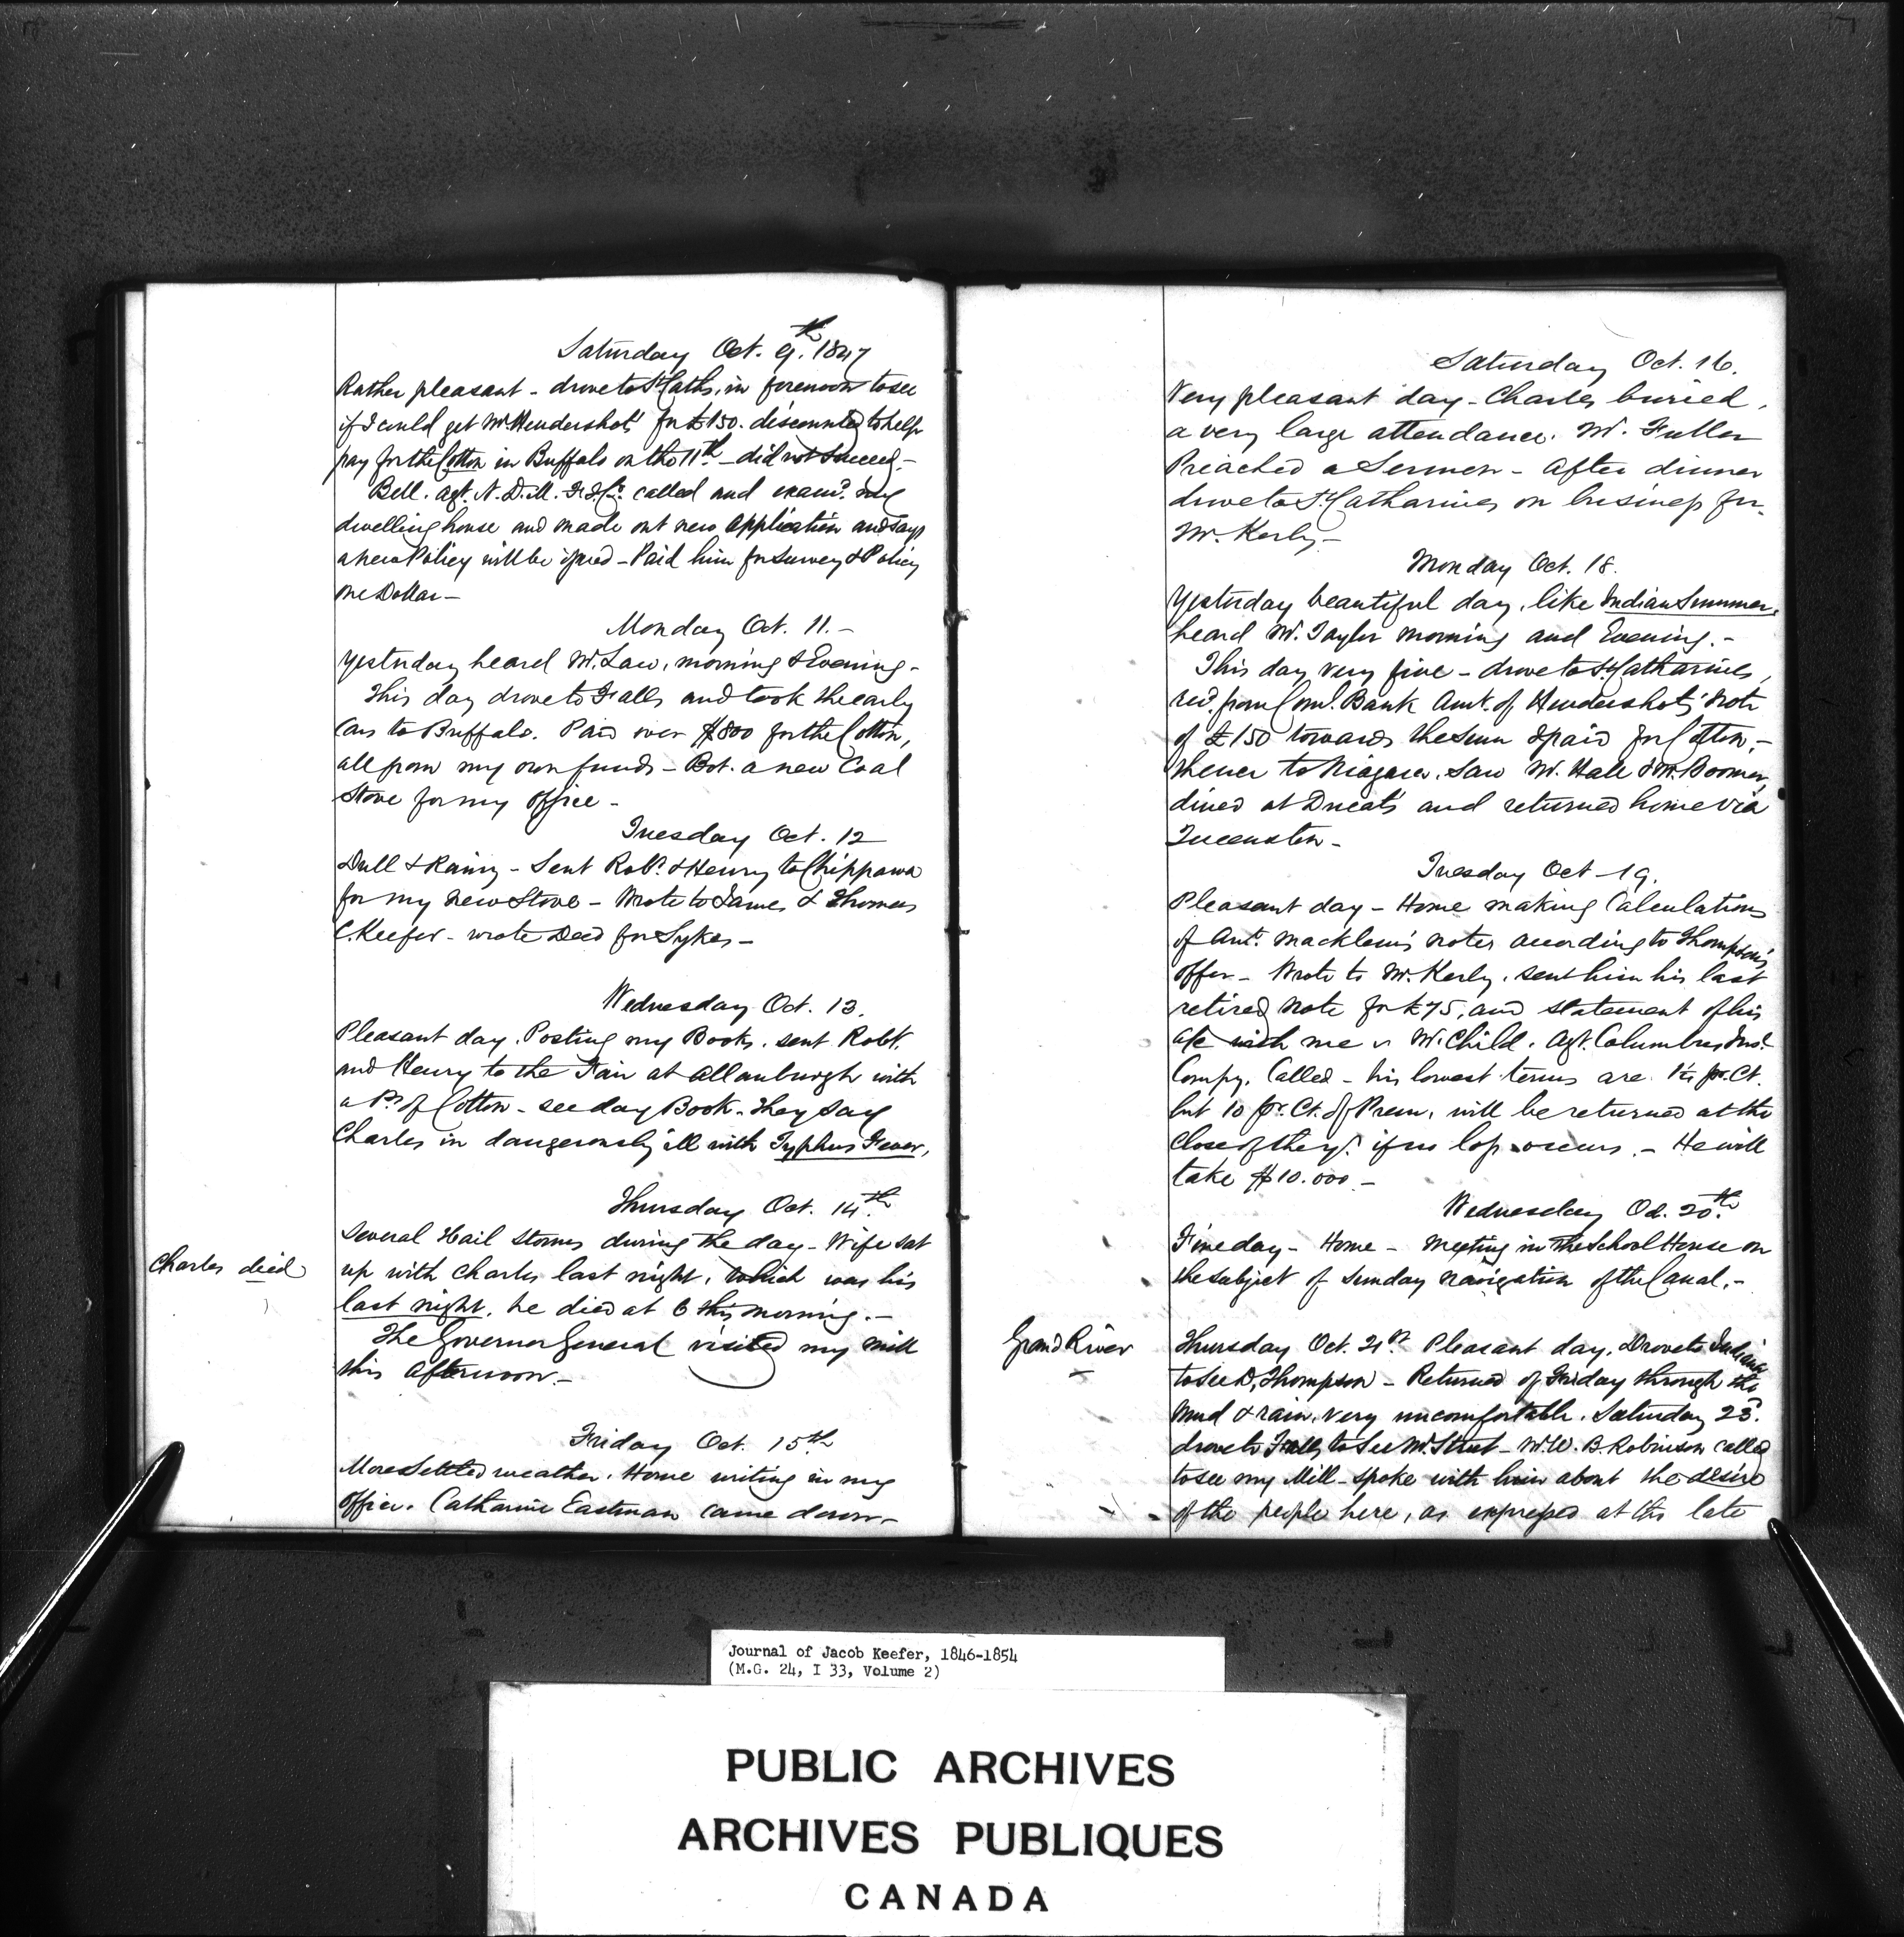 Saturday Oct. 9th. 1847
Rather pleasant - drove to St Caths, in forenoon to see
if I could get Mr. Hendershots' for £150. discounted to help
pay for the Cotton in Buffalo on the 11th - did not succeed. -
Bell. agt. N. D. M. F. I. Co. called and examd. my
dwelling house and made out new application and says
a new Policy will be issued - Paid him for Survey & Policy
one Dollar -
Monday Oct. 11. -
Yesterday heard Mr. Law, morning & Evening -
This day drove to Falls and took the early
Cars to Buffalo. Paid over $800 for the Cotton,
all from my own funds - Bot. a new Coal
Stove for my office -
Tuesday Oct. 12
Dull & Rainy - Sent Robt. & Henry to Chippawa
for my new Stove - Wrote to James & Thomas
C. Keefer - wrote Deed for Sykes -
Wednesday Oct. 13.
Pleasant day. Posting my Books. sent Robt.
and Henry to the Fair at Allanburgh with
a Ps. of Cotton - see day Book - They say
Charles in dangerously ill with Typhus Fever,
Thursday Oct. 14th.
Several Hail storms during the day - Wife sat
Charles died
up with Charles last night, which was his
last night, he died at 6 this morning. -
The Governor General visited my mill
this afternoon. -
Friday Oct. 15th
More Settled weather. Home writing in my
office. Catharine Eastman came down -
Saturday Oct. 16.
Very pleasant day - Charles buried,
a very large attendance. Mr. Fuller
Preached a Sermon - After dinner
drove to St. Catharines on business for
Mr. Kerby -
Monday Oct. 18.
Yesterday beautiful day, like Indian Summer.
heard Mr. Taylor morning and Evening. -
This day very fine - drove to St Catharines,
recd. from Coml. Bank Amt. of Hendershots' Note
of £150 towards the sum I paid for Cotton, -
thence to Niagara. Saw Mr. Hall & Mr. Boomer,
dined at and returned home via
Queenston -
Tuesday Oct - 19.
Pleasant day - Home making Calculations
of Amt. Macklem's notes according to Thompson's
offer - Wrote to Mr. Kerby, sent him his last
retired note for £75, and statement of his
a/c with me Mr. Child. Agt. Columbus Ins.
Compy. Called - his lowest terms are 1¼ pr. Ct.
but 10 pr. Ct. of Prem. will be returned at the
close of the yr. if no loss occurs. - He will
take $10.000 -
Wednesday Oct. 20th.
Fine day - Home - Meeting in the School House on
the subject of Sunday navigation of the Canal. -
Grand River
Thursday Oct. 21st. Pleasant day. Drove to Indiana
to see D. Thompson - Returned of Friday through the
mud & rain, very uncomfortable. Saturday 23.
drove to Falls to See Mr. Street - Mr. W. B. Robinson called
to see my Mill - spoke with him about the desire
of the people here, as expressed at the late
Journal of Jacob Keefer, 1846-1854
(M.G. 24, I 33, Volume 2)
PUBLIC ARCHIVES
ARCHIVES PUBLIQUES
CANADA